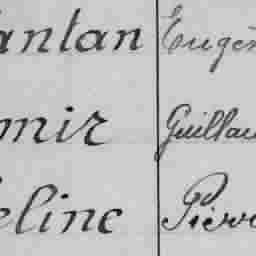 antan Eugèn
mir Guillau
eline Pierre